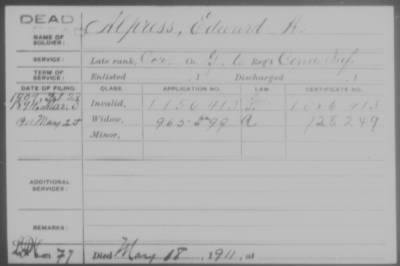 DEAD
NAME OF SOLDIER: Alpress, Edward H.
SERVICE: Late rank, Cor. Co. G, 6 Reg't Conn. Inf.
TERM OF SERVICE: Enlisted , 1 Discharged , 1
DATE OF FILING. CLASS. APPLICATION NO. LAW. CERTIFICATE NO.
Invalid, 1156413
1911 May 25 Widow, 965.299 728249
Minor,
ADDITIONAL SERVICES:
REMARKS:
Died May 18, 1911, at